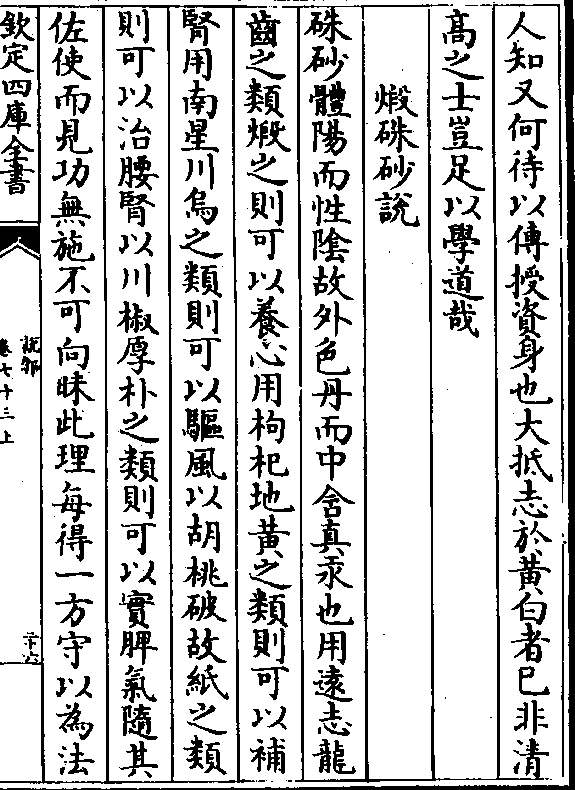 人知又何待以傳授資身也大抵志於黃白者已非清
高之士豈足以學道哉
煅硃砂說
硃砂體陽而性陰故外色丹而中含真汞也用遠志龍
齒之類煅之則可以養心用枸杞地黃之類則可以補
腎用南星川烏之類則可以驅風以胡桃破故紙之類
則可以治腰腎以川椒厚朴之類則可以實脾氣隨其
佐使而見功無施不可向昧此理每得一方守以為法
欽定四庫全書
說郛
卷七十三上
二十六